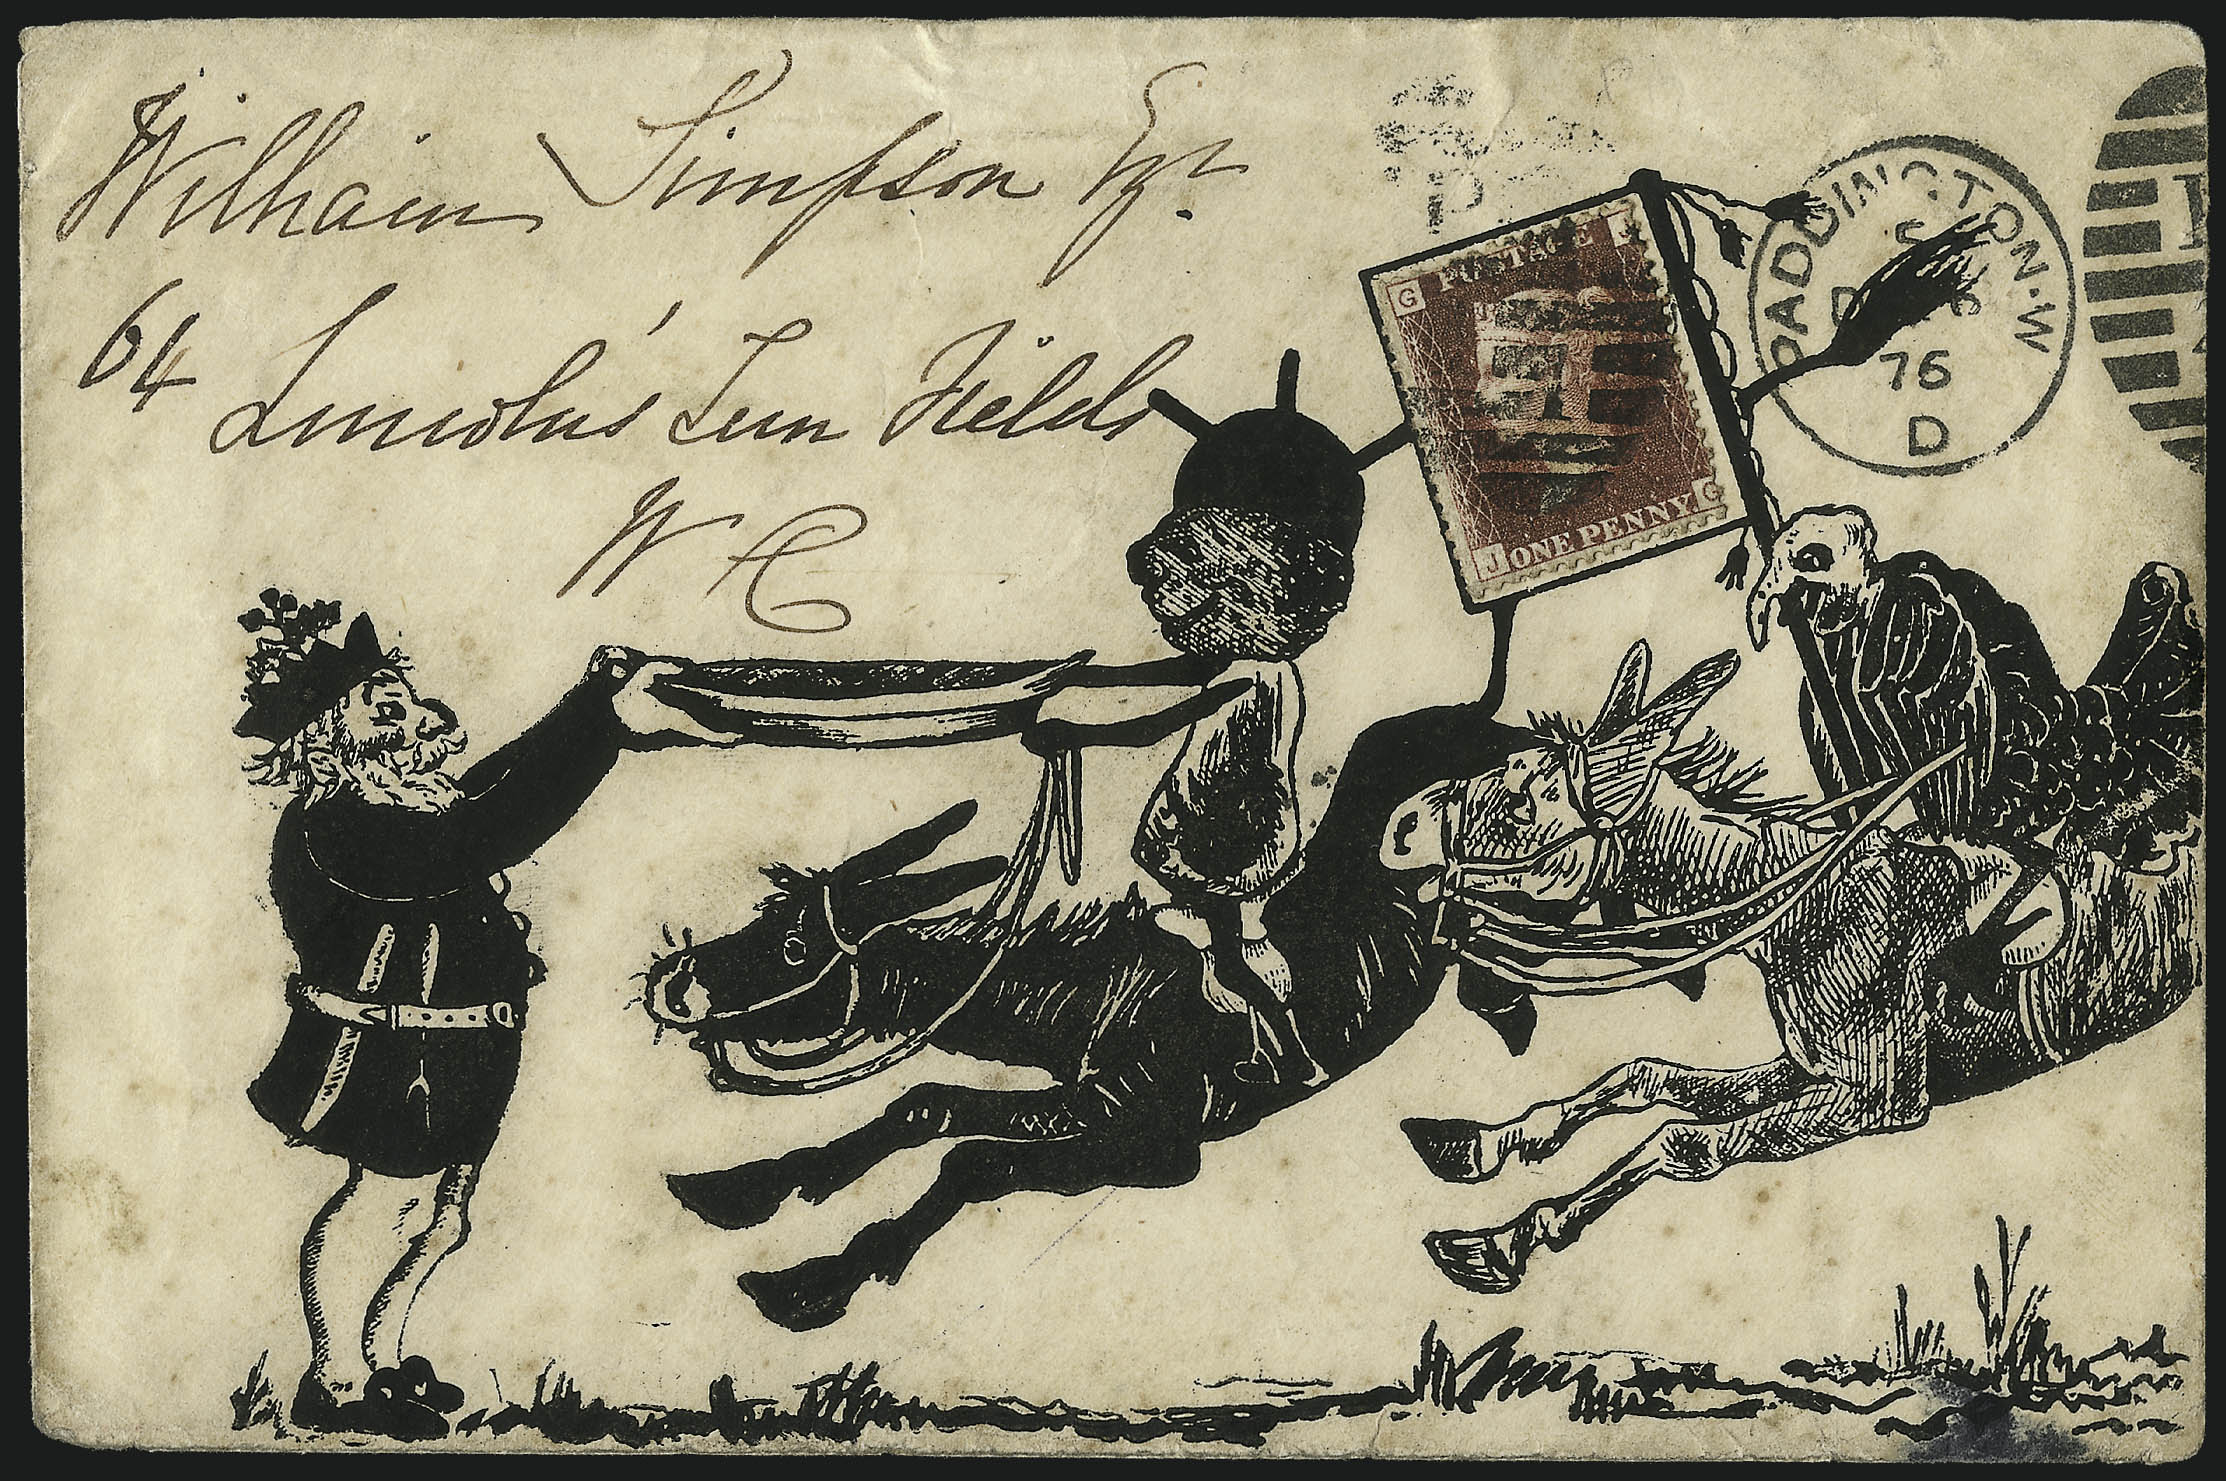 William Simpson Esqr.
64
Lincolns' Inn Fields
W C
G J
POSTAGE
ONE PENNY
J G
PADDINGTON · W
76
D
P